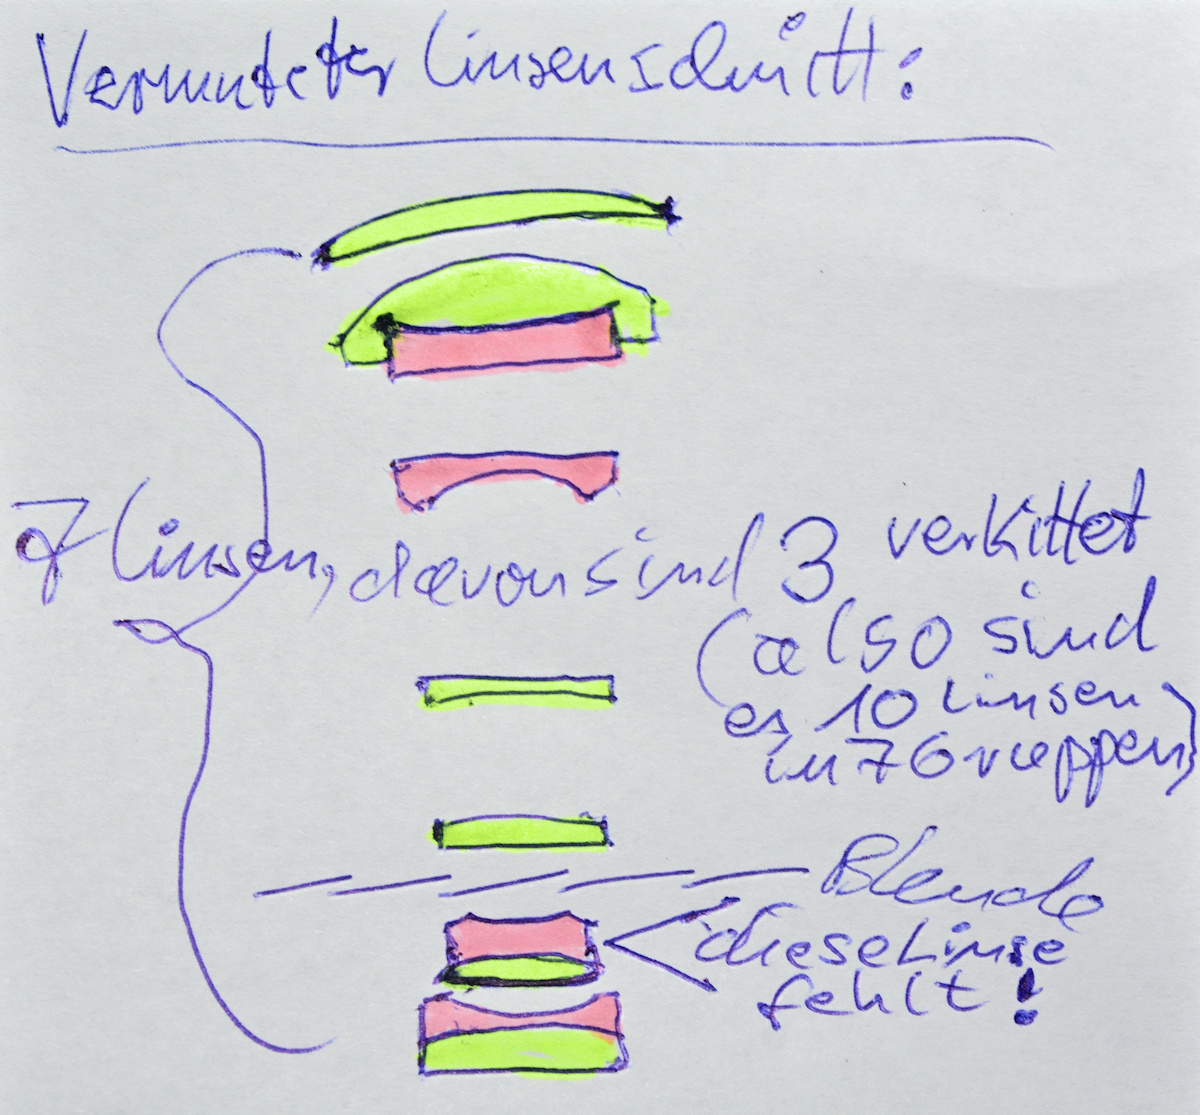 Vermuteter Linsenschnitt:
7 Linsen, davon sind 3 verkittet
(also sind
es 10 Linsen
in 7 Gruppen)
Blende
diese Linse
fehlt!